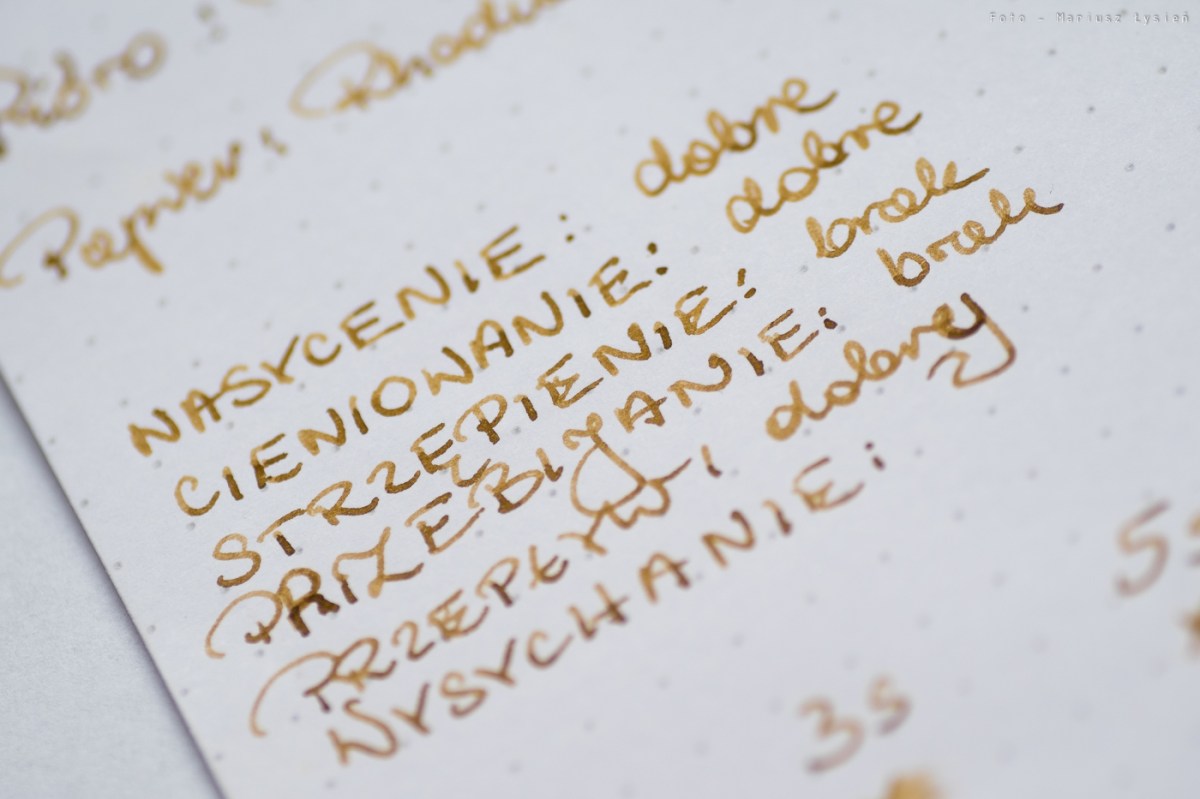 Foto - Mariusz Łysień
Pióro :
Papier :
NASYCENIE : dobre
CIENIOWANIE : dobre
STRZĘPIENIE : brak
PRZEBIJANIE : brak
PRZEPŁYW : dobry
WYSYCHANIE :
3s